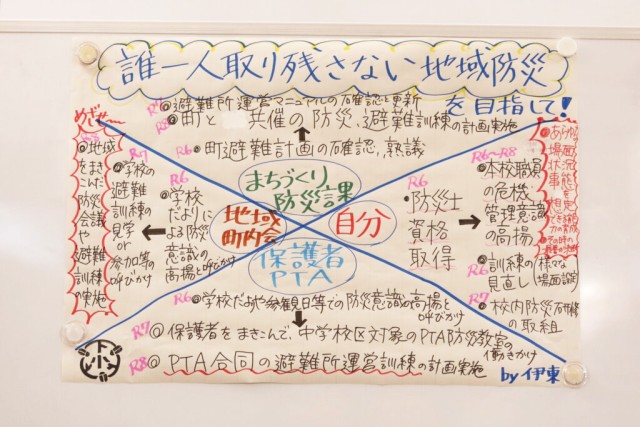 誰一人取り残さない地域防災
を目指して!
めざせ〜
R5 ◎避難所運営マニュアルの確認と更新
R8 ◎町と 共催の防災、避難訓練の計画実施
R6 ・町避難計画の確認、熟議
まちづくり
防災課
地域
町内会
自分
保護者
PTA
◎地域
をまき
こんだ
防災会議や
避難
訓練の実施
R7
◎学校の
避難
訓練の
見学
or
参加等の
呼びかけ
R6
◎学校
だより
による防災
意識の
高揚と呼びかけ
R6
・防災士
資格
取得
R6〜R8
◎本校職員
の危機
管理意識
の高揚
R6
◎訓練の(様々な
見直し 場面設定)
R7
◎校内防災研修
の取組
◎あらゆる
場面
状況
事態を
想定
R6 ◎学校だよりや参観日等での防災意識の高揚と
呼びかけ
R7 ◎保護者をまきこんで、中学校区対象のPTA防災教室の
働きかけ
R8 ◎PTA合同の避難所運営訓練の計画実施
by 伊東